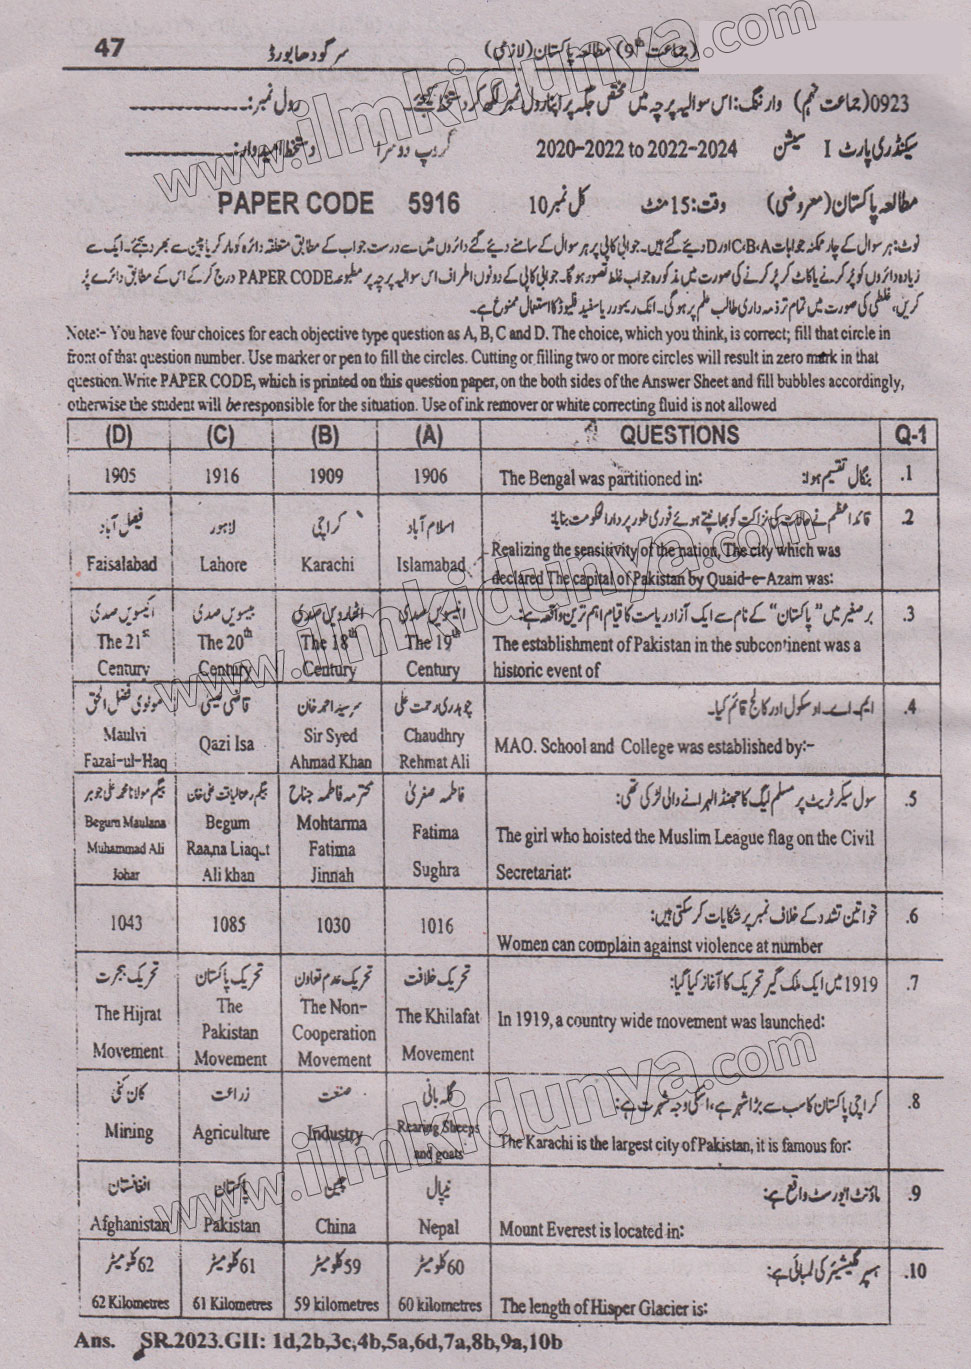 47 سرگودھا بورڈ (جماعت 9th) مطالعہ پاکستان (لازمی)
0923 (جماعت نہم) وارننگ: اس سوالیہ پرچہ میں مختص جگہ پر اپنا رول نمبر لکھ کر دستخط کیجئے۔ رول نمبر:
سیکنڈری پارٹ I سیشن 2020-2022 to 2022-2024 گروپ دوسرا دستخط امیدوار:
مطالعہ پاکستان (معروضی) وقت: 15 منٹ کل نمبر 10 PAPER CODE 5916
نوٹ: ہر سوال کے چار ممکنہ جوابات C، B، A اور D دیئے گئے ہیں۔ جوابی کاپی پر ہر سوال کے سامنے دیئے گئے دائروں میں سے درست جواب کے مطابق متعلقہ دائرہ کو مارکر یا پین سے بھر دیجئے۔ ایک سے
زیادہ دائروں کو پُر کرنے یا کاٹ کر پُر کرنے کی صورت میں مذکورہ جواب غلط تصور ہوگا۔ جوابی کاپی کے دونوں اطراف اس سوالیہ پرچہ پر مطبوعہ PAPER CODE درج کر کے اس کے مطابق دائرے پُر
کریں، غلطی کی صورت میں تمام تر ذمہ داری طالب علم پر ہوگی۔ انک ریمور یا سفید فلیوڈ کا استعمال ممنوع ہے۔
Note:- You have four choices for each objective type question as A, B, C and D. The choice, which you think, is correct; fill that circle in
front of that question number. Use marker or pen to fill the circles. Cutting or filling two or more circles will result in zero mark in that
question. Write PAPER CODE, which is printed on this question paper, on the both sides of the Answer Sheet and fill bubbles accordingly,
otherwise the student will be responsible for the situation. Use of ink remover or white correcting fluid is not allowed
(D) (C) (B) (A) QUESTIONS Q-1
1905 1916 1909 1906 The Bengal was partitioned in: بنگال تقسیم ہوا: .1
فیصل آباد لاہور کراچی اسلام آباد قائداعظم نے حالات کی نزاکت کو بھانپتے ہوئے فوری طور پر دارالحکومت بنایا: .2
Faisalabad Lahore Karachi Islamabad Realizing the sensitivity of the nation, The city which was
declared The capital of Pakistan by Quaid-e-Azam was:
اکیسویں صدی بیسویں صدی اٹھارویں صدی انیسویں صدی برصغیر میں "پاکستان" کے نام سے ایک آزاد ریاست کا قیام اہم ترین واقعہ ہے: .3
The 21st The 20th The 18th The 19th The establishment of Pakistan in the subcontinent was a
Century Century Century Century historic event of
مولوی فضل الحق قاضی عیسیٰ سرسید احمد خان چوہدری رحمت علی ایم۔اے۔او سکول اور کالج قائم کیا۔ .4
Maulvi Qazi Isa Sir Syed Chaudhry MAO. School and College was established by:-
Fazal-ul-Haq Ahmad Khan Rehmat Ali
بیگم مولانا محمد علی جوہر بیگم رعنا لیاقت علی خان محترمہ فاطمہ جناح فاطمہ صغریٰ سول سیکرٹریٹ پر مسلم لیگ کا جھنڈا لہرانے والی لڑکی تھی: .5
Begum Maulana Begum Mohtarma Fatima The girl who hoisted the Muslim League flag on the Civil
Muhammad Ali Raana Liaqut Fatima Sughra Secretariat:
Johar Ali khan Jinnah
1043 1085 1030 1016 خواتین تشدد کے خلاف نمبر پر شکایات کر سکتی ہیں: .6
Women can complain against violence at number
تحریک ہجرت تحریک پاکستان تحریک عدم تعاون تحریک خلافت 1919 میں ایک ملک گیر تحریک کا آغاز کیا گیا: .7
The Hijrat The The Non- The Khilafat In 1919, a country wide movement was launched:
Movement Pakistan Cooperation Movement
Movement Movement
کان کنی زراعت صنعت گلہ بانی کراچی پاکستان کا سب سے بڑا شہر ہے، اسکی وجہ شہرت ہے: .8
Mining Agriculture Industry Rearing Sheeps The Karachi is the largest city of Pakistan, it is famous for:
and goats
افغانستان پاکستان چین نیپال ماؤنٹ ایورسٹ واقع ہے: .9
Afghanistan Pakistan China Nepal Mount Everest is located in:
62 کلومیٹر 61 کلومیٹر 59 کلومیٹر 60 کلومیٹر ہسپر گلیشیئر کی لمبائی ہے: .10
62 Kilometres 61 Kilometres 59 kilometres 60 kilometres The length of Hisper Glacier is:
Ans. SR.2023.GII: 1d,2b,3c,4b,5a,6d,7a,8b,9a,10b
www.ilmkidunya.com
www.ilmkidunya.com
www.ilmkidunya.com